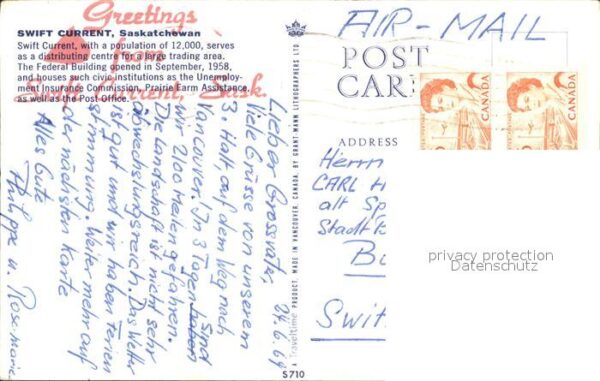 Greetings
from
Swift Current, Sask.
SWIFT CURRENT, Saskatchewan
Swift Current, with a population of 12,000, serves
as a distributing centre for a large trading area.
The Federal Building opened in September, 1958,
and houses such civic institutions as the Unemploy-
ment Insurance Commission, Prairie Farm Assistance,
as well as the Post Office.
24.6.69
Lieber Grossvater,
Viele Grüsse von unserem
3. Halt, auf dem Weg nach
Vancouver. In 3 Tagen haben sind
wir 2100 Meilen gefahren.
Die Landschaft ist nicht sehr
abwechslungsreich. Das Wetter
ist gut und wir haben Ferien
stimmung. Weiter mehr auf
der nächsten Karte
Alles Gute
Philippe u. Rosemarie
A Traveltime PRODUCT MADE IN VANCOUVER, CANADA, BY GRANT-MANN LITHOGRAPHERS LTD.
S710
AIR-MAIL
POST
CAR
ADDRESS
CANADA
CANADA
Herrn
CARL H
alt Sp
Stadt
B
Swit
privacy protection
Datenschutz